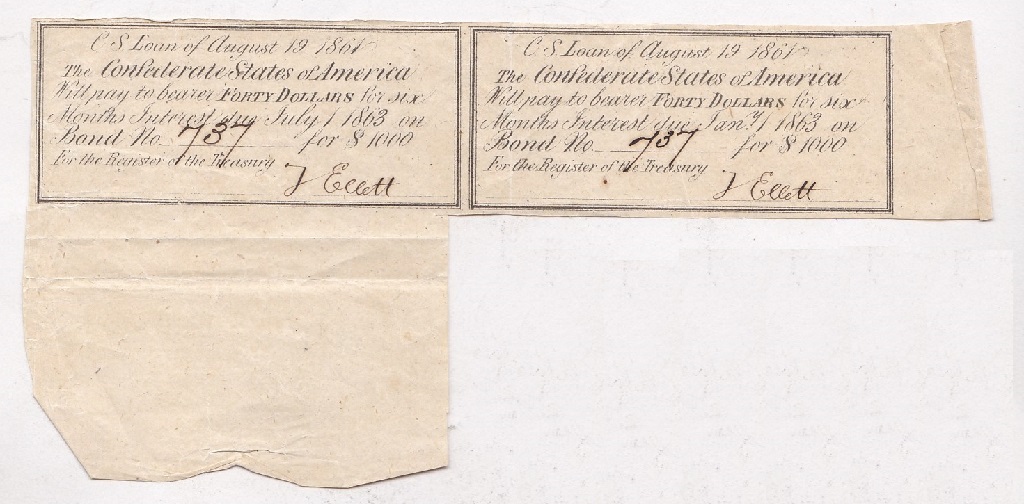 C S Loan of August 19 1861
The Confederate States of America
Will pay to bearer FORTY DOLLARS for six
Months Interest due July 1 1863 on
Bond No. 737 for $1000
For the Register of the Treasury
J Ellett
C S Loan of August 19 1861
The Confederate States of America
Will pay to bearer FORTY DOLLARS for six
Months Interest due Jany 1 1863 on
Bond No. 737 for $1000
For the Register of the Treasury
J Ellett